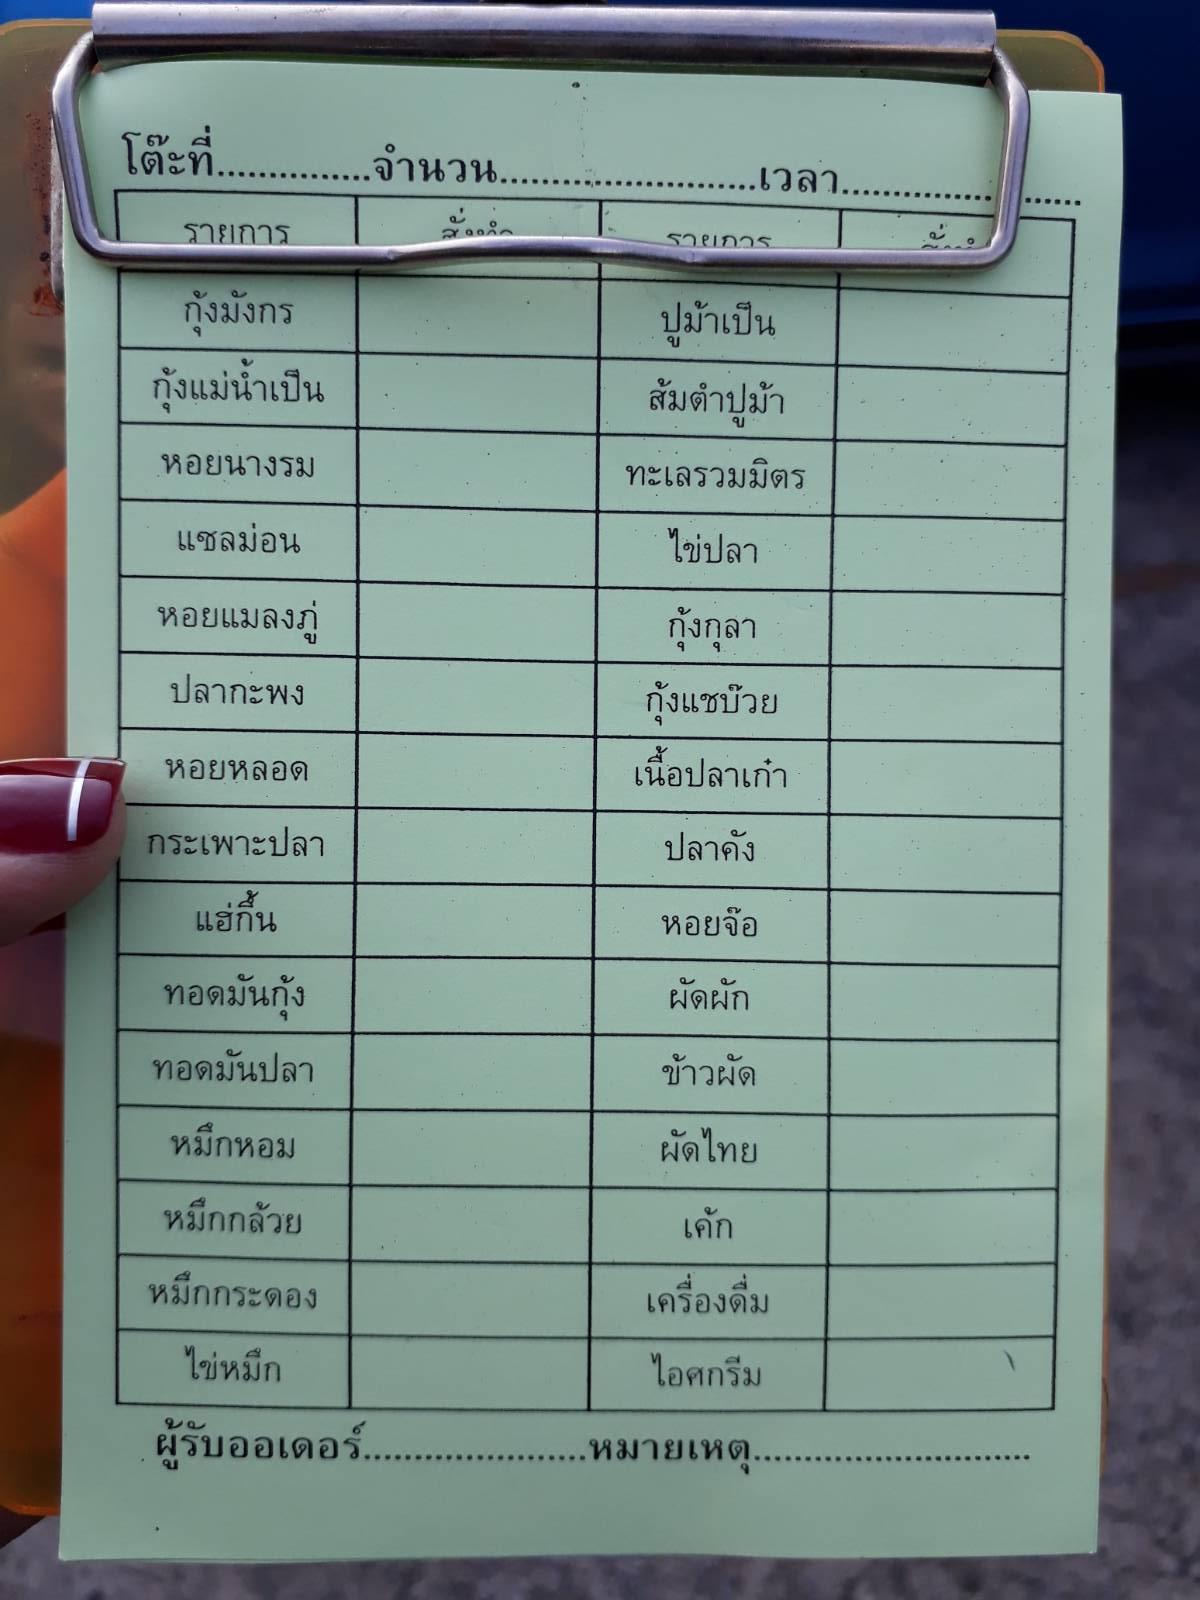 โต๊ะที่...............จำนวน.........................เวลา........................
รายการ สั่งทำ รายการ สั่งทำ
กุ้งมังกร ปูม้าเป็น
กุ้งแม่น้ำเป็น ส้มตำปูม้า
หอยนางรม ทะเลรวมมิตร
แซลม่อน ไข่ปลา
หอยแมลงภู่ กุ้งกุลา
ปลากะพง กุ้งแชบ๊วย
หอยหลอด เนื้อปลาเก๋า
กระเพาะปลา ปลาคัง
แฮ่กึ้น หอยจ๊อ
ทอดมันกุ้ง ผัดผัก
ทอดมันปลา ข้าวผัด
หมึกหอม ผัดไทย
หมึกกล้วย เค้ก
หมึกกระดอง เครื่องดื่ม
ไข่หมึก ไอศกรีม
ผู้รับออเดอร์......................หมายเหตุ...........................